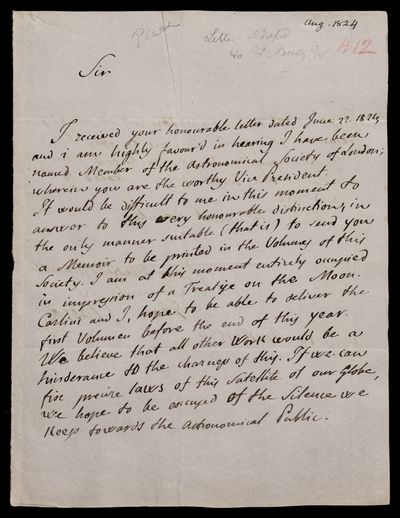 Aug. 1824
Letter
to F. Baily
A12
Sir
I received your honourable letter dated June 22. 1824,
and i am highly favour'd in hearing I have been
named Member of the Astronomical Society of London;
wherein you are the worthy Vice President.
It would be difficult to me in this moment to
answer to this very honourable distinction, in
the only manner suitable (that is) to send you
a Memoir to be printed in the Volumes of this
Society. I am at this moment entirely occupied
in impression of a Treatise on the Moon.
Carlini and I, hope to be able to deliver the
first Volumen before the end of this year.
We believe that all other work would be a
hinderance to the charness of this. If we can
fix precise laws of this Satellite of our Globe,
we hope to be excused of the Silence we
Keep towards the Astronomical Public.